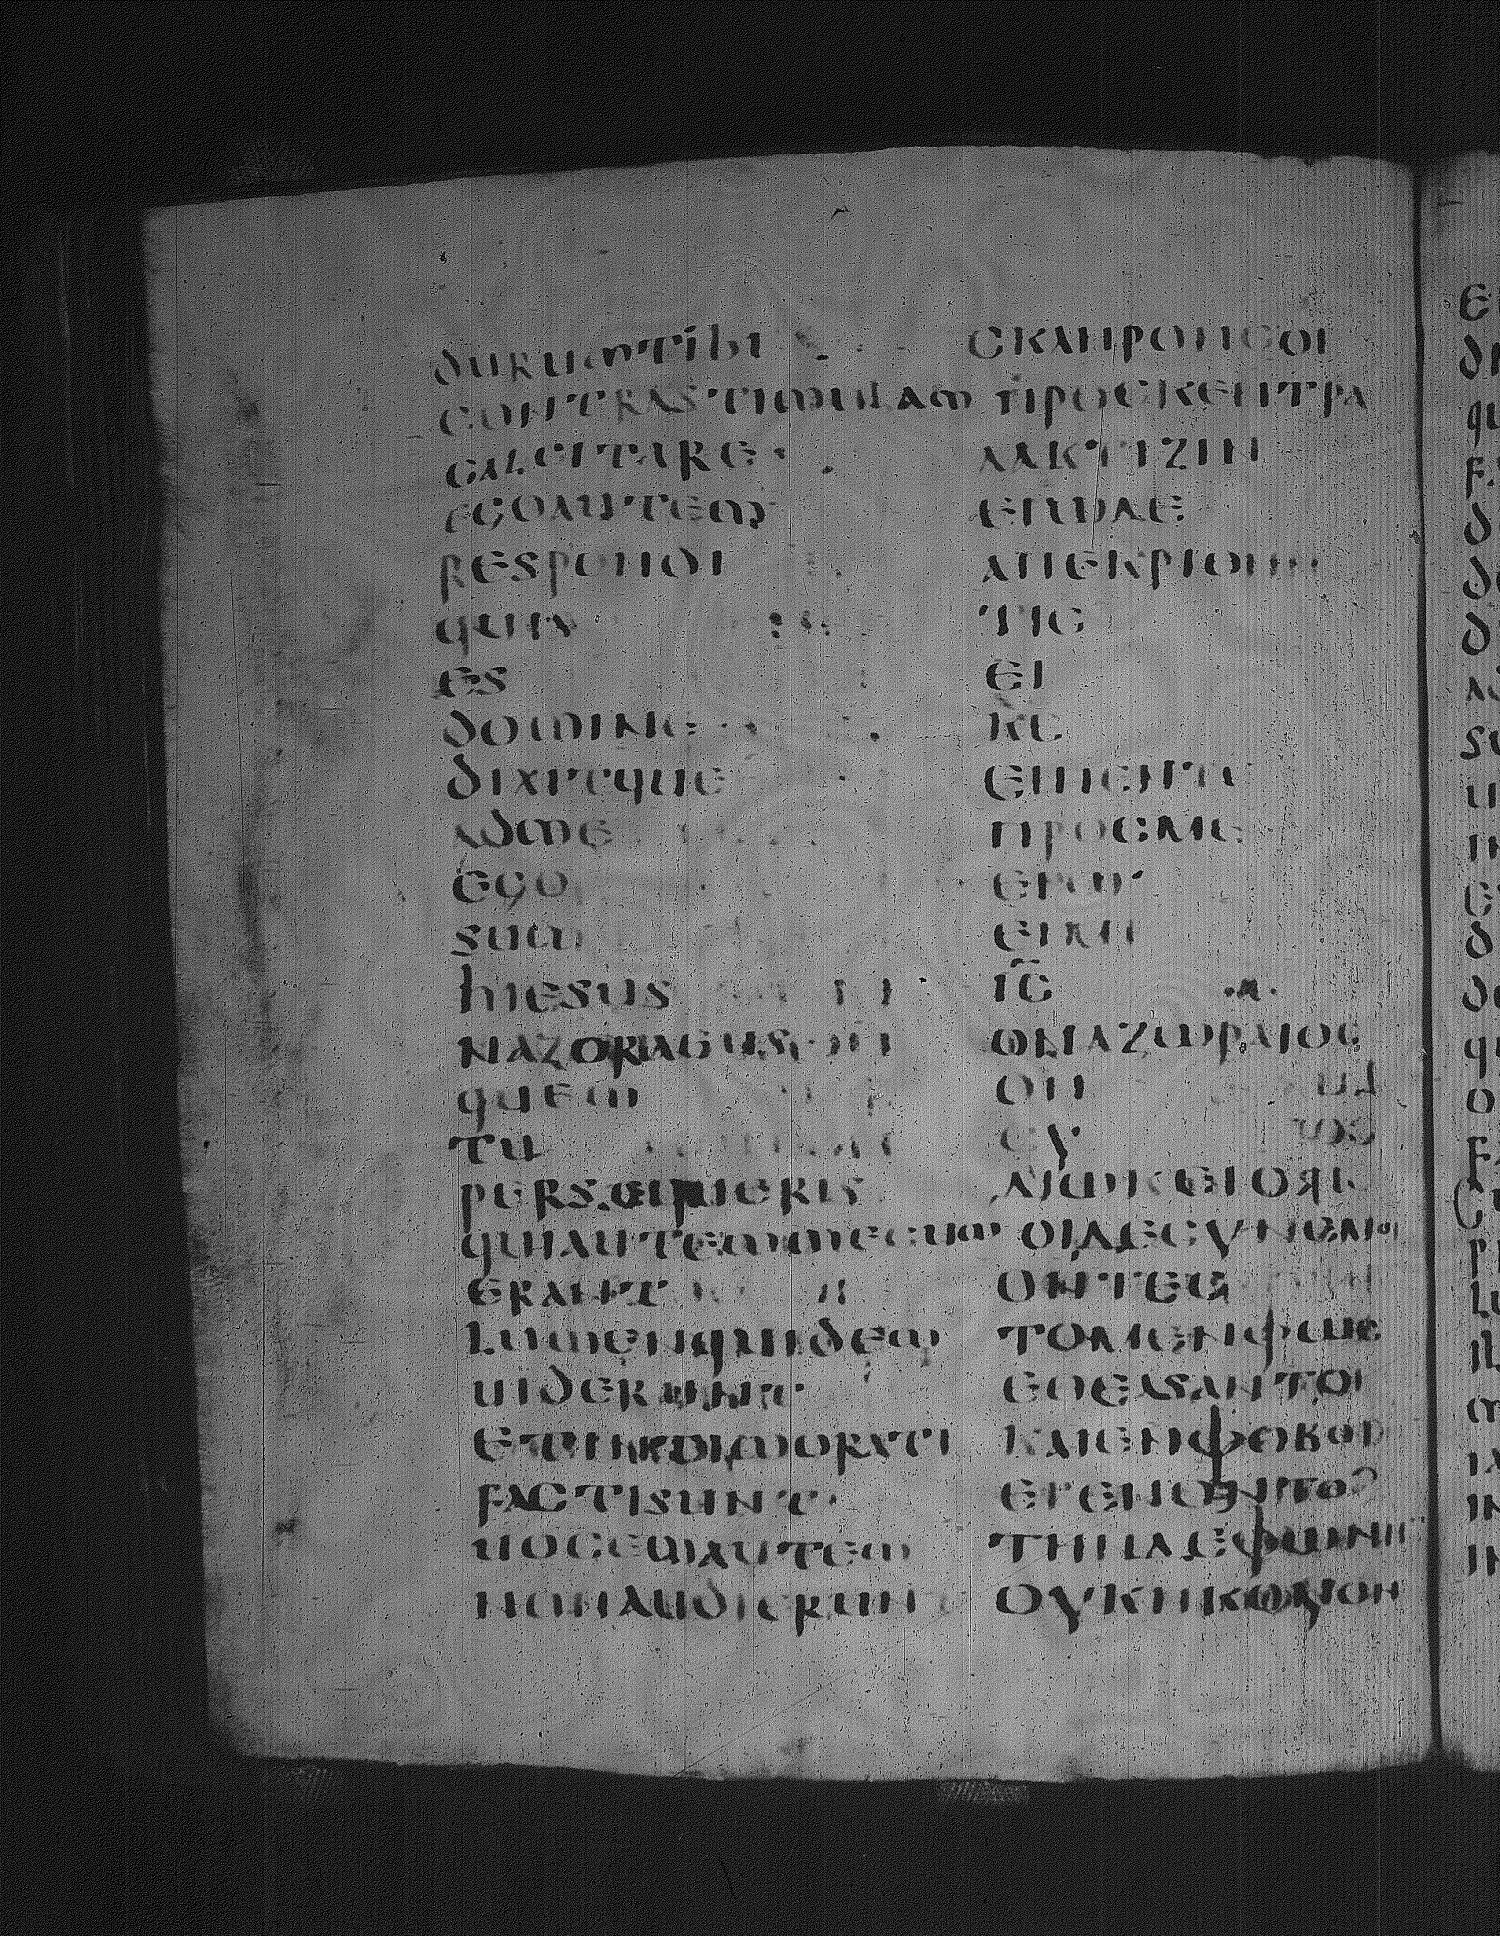 durumtibi ϲκληροnϲοι
contrastimulum προϲκεντρα
calcitare λακτιζιν
egoautem εγωδε
respondi απεκριθην
quis τιϲ
es ει
domine κε
dixitque ειπεν
adme προϲμε
ego εγω
sum ειμι
hiesus ιϲ
nazoraeus ωναζωραιοϲ
quem ον
tu ϲυ
persequeris διωκειϲ
quiautemmecum οιδεϲυνεμοι
erant οντεϲ
lumenquidem τομενφωϲ
uiderunt εθεαϲαντο
etintimorati καιενφοβοι
factisunt εγενοντο
uocemautem τηνδεφωνην
nonaudierun ουκηκουϲον